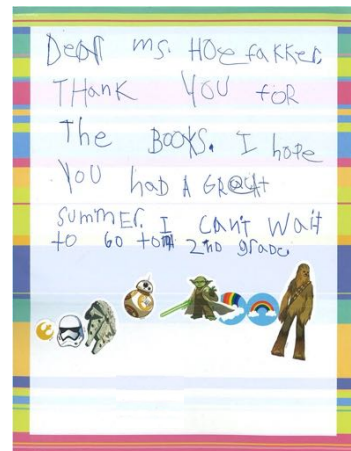 Dear ms. HOefakker,
THank YOU foR
The BOOKS. I hope
YOU had A GReat
summer. I can't wait
to GO to 2nd grade.